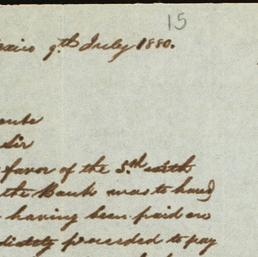 15
exico 9th July 1880.
Sir
favor of the 5th
the Bank was to hand
having been paid on
diately proceeded to pay